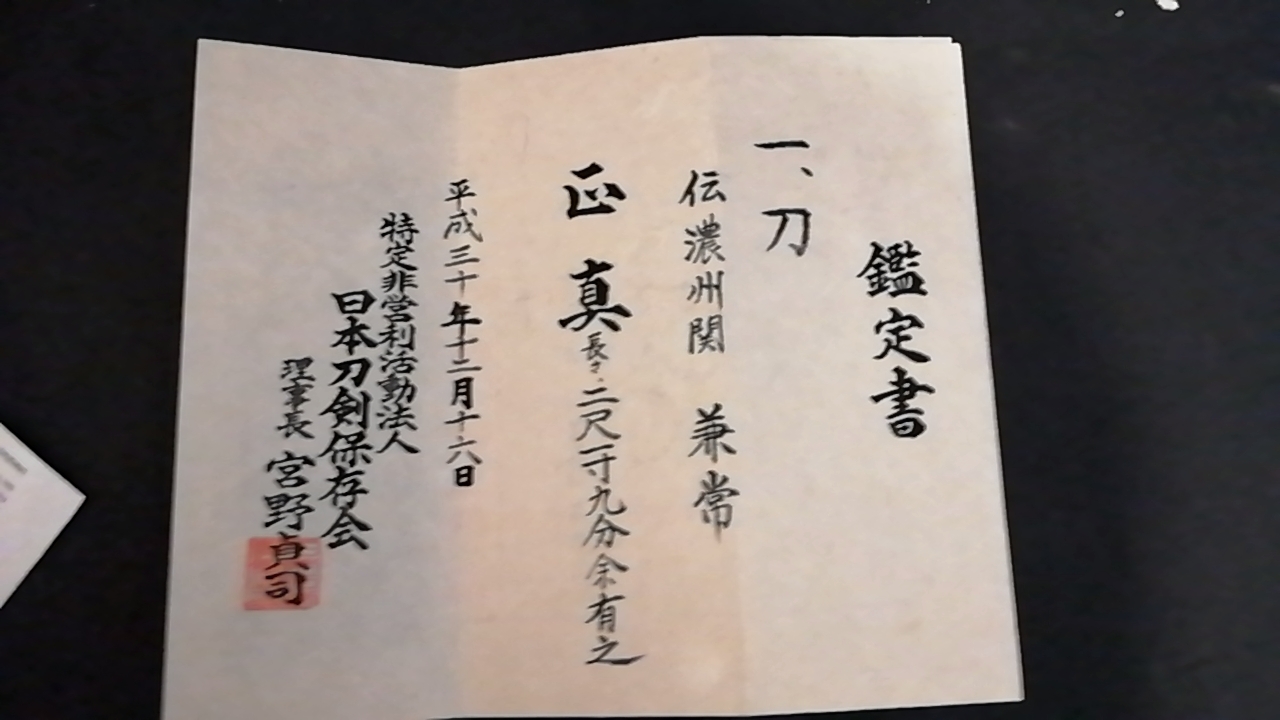 鑑定書
一、刀
伝濃州関 兼常
正真 長サ、二尺一寸九分余有之
平成三十年十二月十六日
特定非営利活動法人
日本刀剣保存会
理事長 宮野貞司